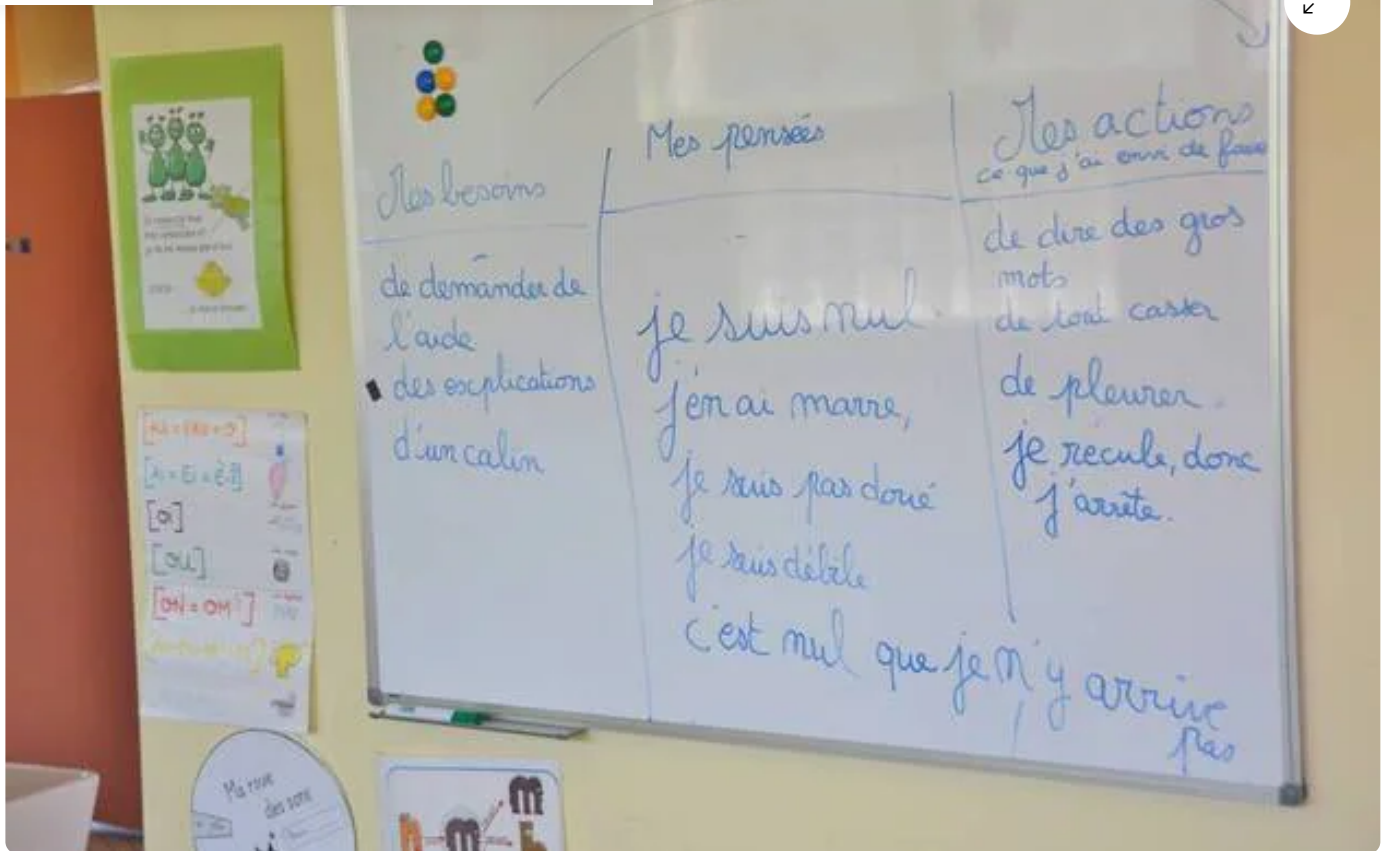 Mes besoins
de demander de
l'aide
des escplications
d'un calin
Mes pensées
je suis nul.
j'en ai marre,
je suis pas doué
je suis débile
c'est nul que je n'y arrive
pas
Mes actions
ce que j'ai envi de faire
de dire des gros
mots
de tout casser
de pleurer.
je récule, donc
j'arrête.
[OI]
[OU]
[ON = OM]
Ma roue
des sons
m
m